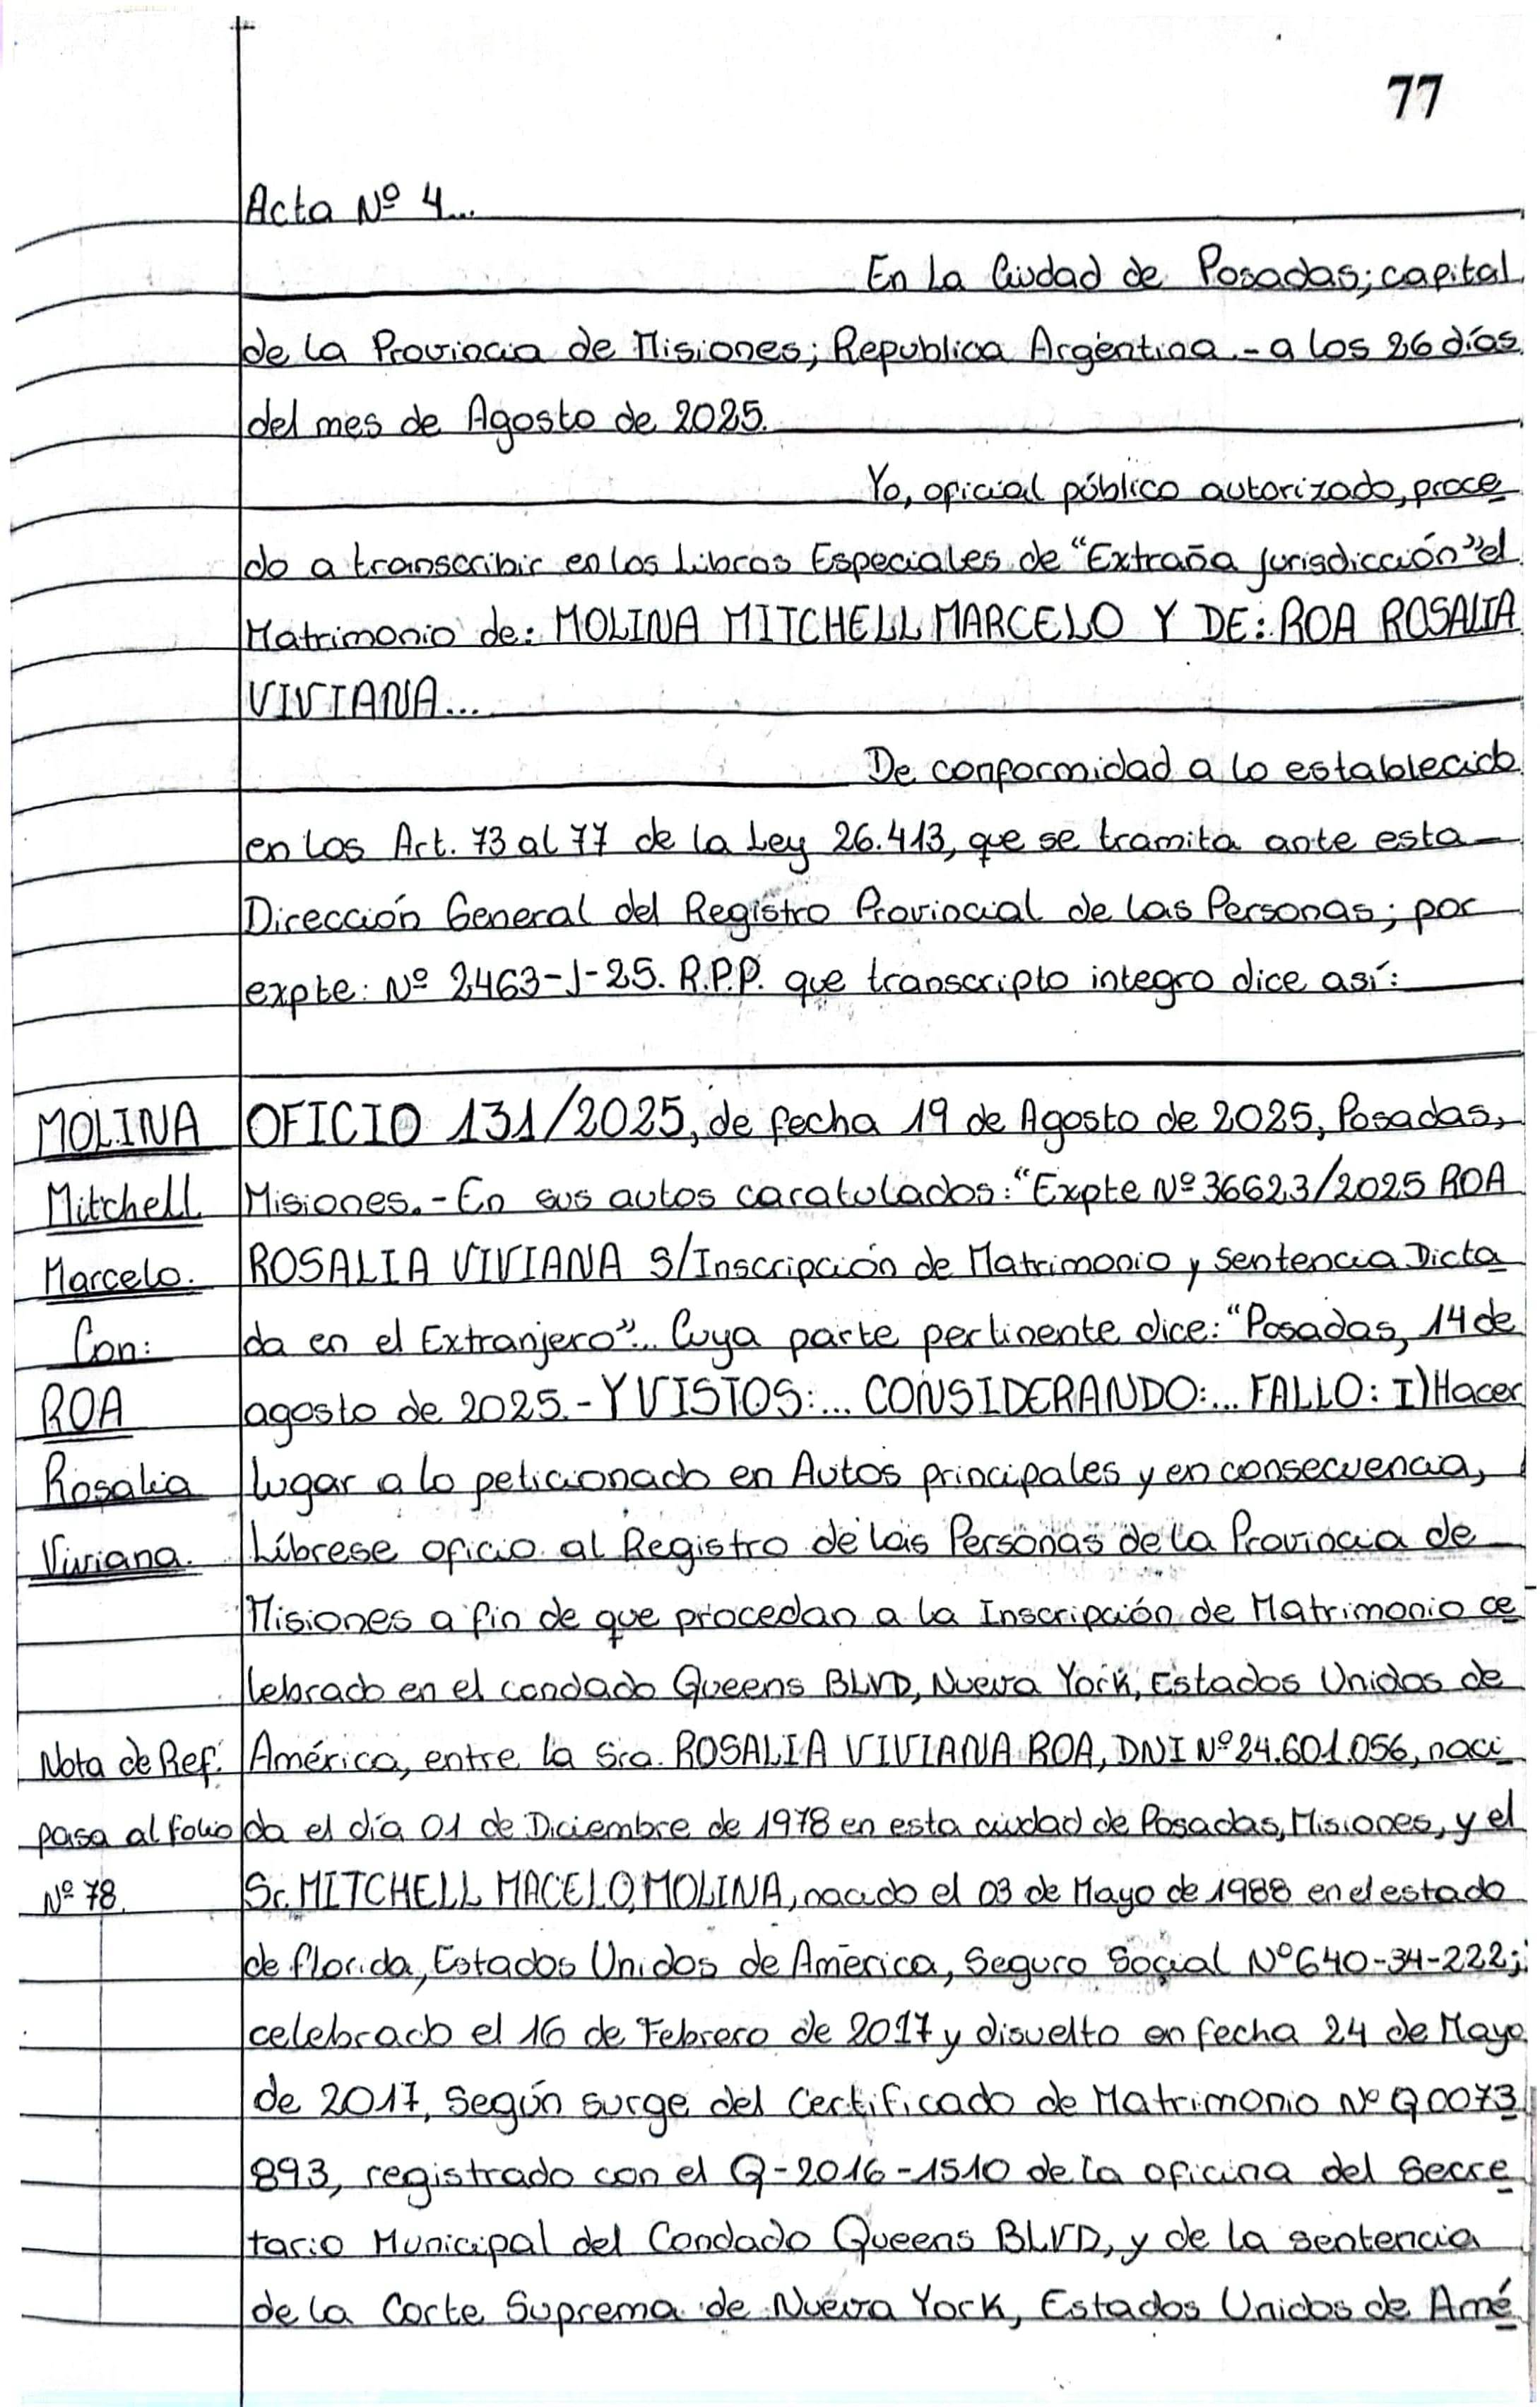 77
Acta Nº 4...
En La Ciudad de Posadas; capital
de la Provincia de Misiones; Republica Argentina.- a los 26 días
del mes de Agosto de 2025.
Yo, oficial público autorizado, proce
do a transcribir en los Libros Especiales de "Extraña Jurisdicción" el
Matrimonio de: MOLINA MITCHELL MARCELO Y DE: ROA ROSALIA
VIVIANA...
De conformidad a lo establecido
en los Art. 73 al 77 de la Ley 26.413, que se tramita ante esta
Dirección General del Registro Provincial de las Personas; por
expte: Nº 2463-J-25. R.P.P. que transcripto integro dice así:
MOLINA
Mitchell
Marcelo.
Con:
ROA
Rosalia
Viviana.
OFICIO 131/2025, de fecha 19 de Agosto de 2025, Posadas,
Misiones.- En sus autos caratulados: "Expte Nº 36623/2025 ROA
ROSALIA VIVIANA S/Inscripción de Matrimonio y Sentencia Dicta
da en el Extranjero"... Cuya parte pertinente dice: "Posadas, 14 de
agosto de 2025.- Y VISTOS:... CONSIDERANDO:... FALLO: I) Hacer
lugar a lo peticionado en Autos principales y en consecuencia,
Líbrese oficio al Registro de las Personas de la Provincia de
Misiones a fin de que procedan a la Inscripción de Matrimonio ce
lebrado en el condado Queens BLVD, Nueva York, Estados Unidos de
América, entre la Sra. ROSALIA VIVIANA ROA, DNI Nº 24.601.056, naci
da el día 01 de Diciembre de 1978 en esta ciudad de Posadas, Misiones, y el
Sr. MITCHELL MACELO, MOLINA, nacido el 03 de Mayo de 1988 en el estado
de florida, Estados Unidos de América, Seguro Social Nº 640-34-222;
celebrado el 16 de Febrero de 2017 y disuelto en fecha 24 de Mayo
de 2017, Según surge del Certificado de Matrimonio Nº Q0073
893, registrado con el Q-2016-1510 de la oficina del Secre
tario Municipal del Condado Queens BLVD, y de la sentencia
de la Corte Suprema de Nueva York, Estados Unidos de Amé
Nota de Ref.
pasa al folio
Nº 78.